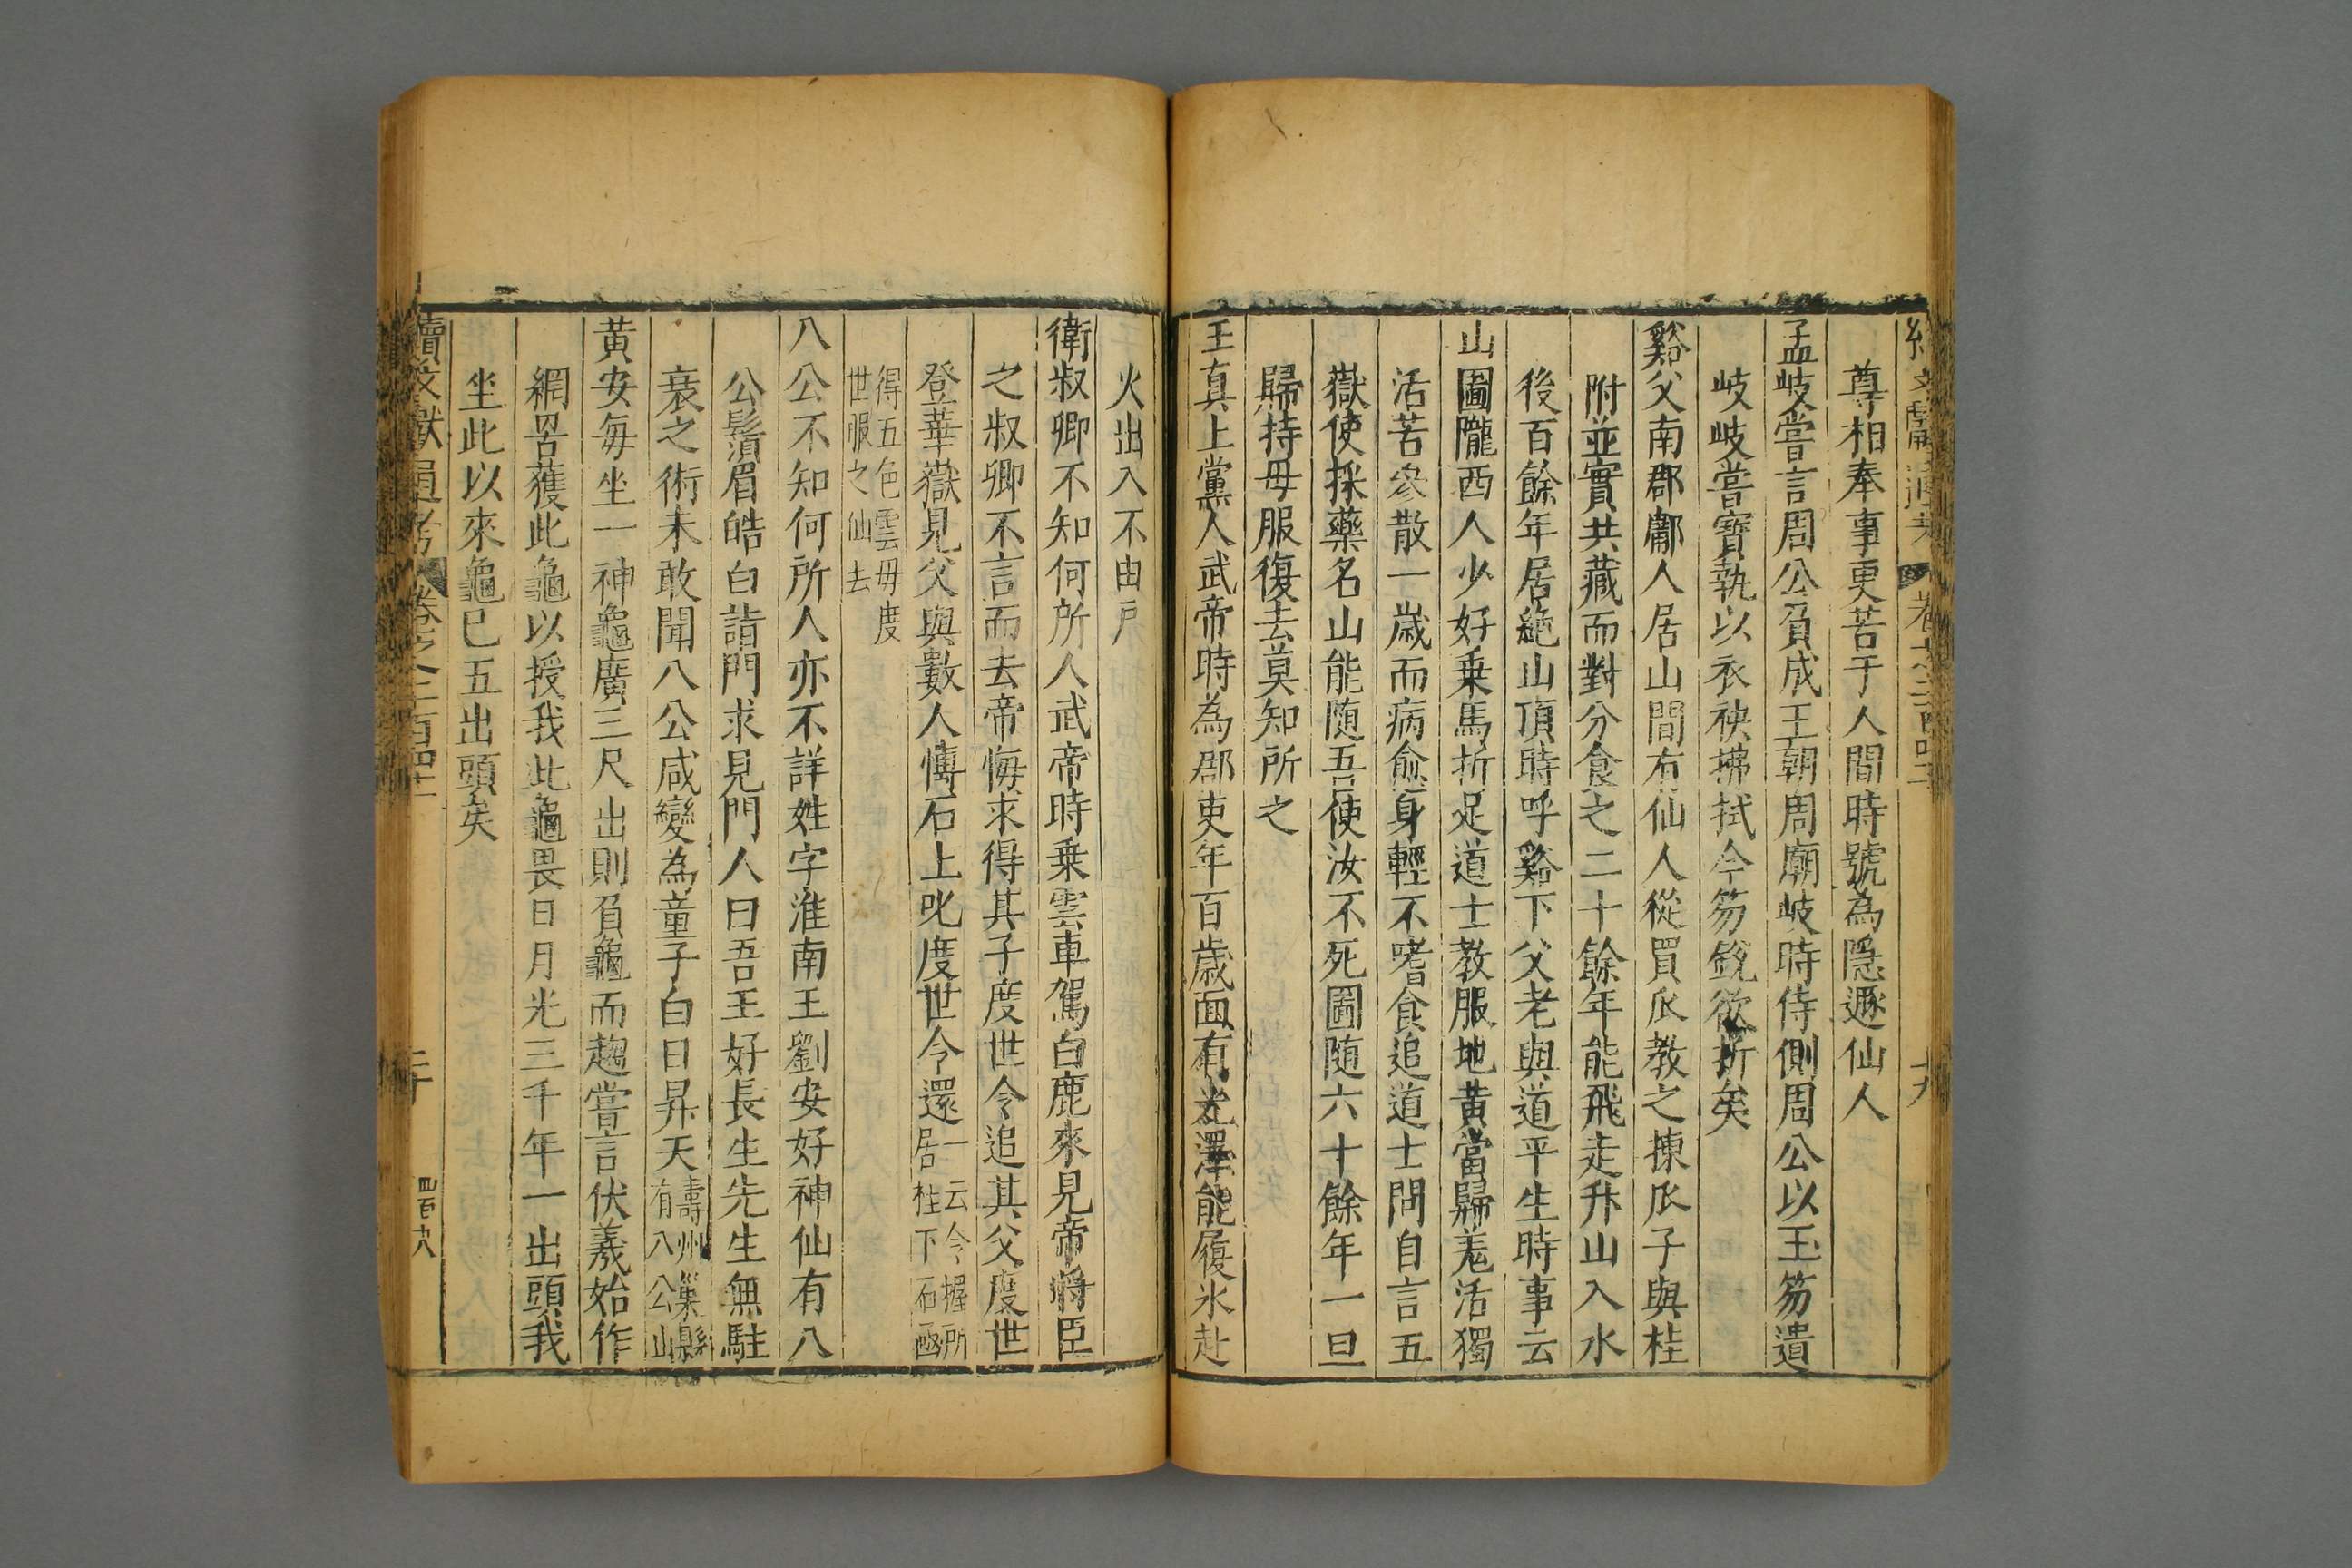 續文獻通考 卷之二百四十二 十九
尊相奉事更苦于人間時號為隱遯仙人
孟岐嘗言周公負成王朝周廟岐時侍側周公以玉笏遺
岐岐嘗寶執以衣袂拂拭今笏銳欲折矣
谿父南郡鄘人居山間有仙人從買瓜教之揀瓜子與桂
附並實共藏而對分食之二十餘年能飛走升山入水
後百餘年居絶山頂時呼谿下父老與道平生時事云
山圖隴西人少好乗馬折足道士教服地黃當歸羗活獨
活苦參散一歲而病愈身輕不嗜食追道士問自言五
嶽使採藥名山能随吾使汝不死圖随六十餘年一旦
歸持母服復去莫知所之
王真上黨人武帝時為郡吏年百歲面有光澤能履氷赴
火出入不由戸
衛叔卿不知何所人武帝時乗雲車駕白鹿來見帝將臣
之叔卿不言而去帝悔求得其子度世令追其父度世
登華嶽見父與數人慱石上叱度世令還一云令握所居柱下石函
得五色雲母度世服之仙去
八公不知何所人亦不詳姓字淮南王劉安好神仙有八
公鬚眉皓白詣門求見門人曰吾王好長生先生無駐
衰之術未敢聞八公咸變為童子白日昇天壽州巢縣有八公山
黃安每坐一神龜廣三尺出則負龜而趨嘗言伏羲始作
網罟獲此龜以授我此龜畏日月光三千年一出頭我
坐此以來龜已五出頭矣
續文獻通考 卷之二百四十二 二十